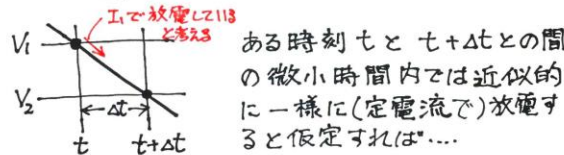 I₁で放電している
と考える
V₁
V₂
Δt
t
t+Δt
ある時刻 t と t+Δt との間
の微小時間内では近似的
に一様に(定電流で)放電す
ると仮定すれば‥‥